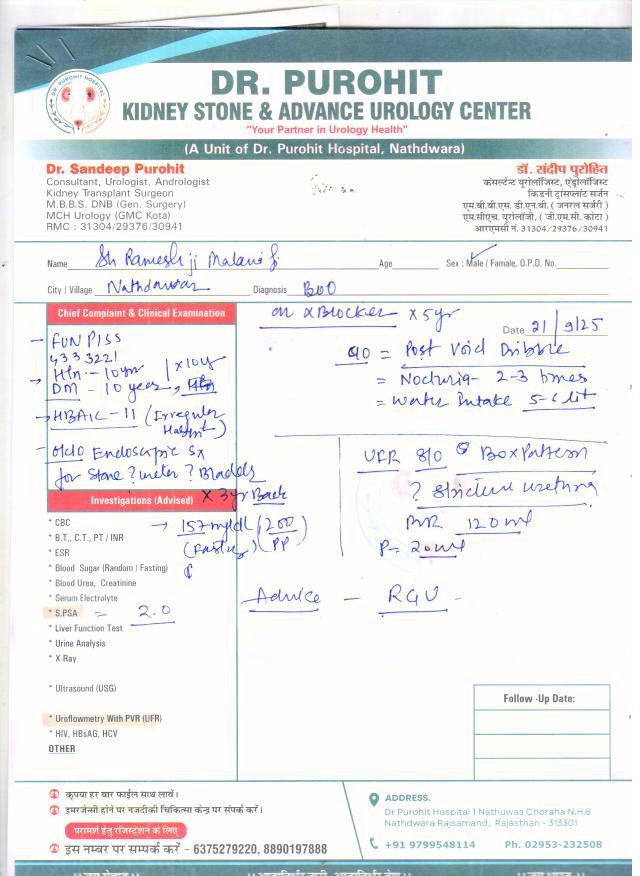 DR. PUROHIT HOSPITAL
DR. PUROHIT
KIDNEY STONE & ADVANCE UROLOGY CENTER
"Your Partner in Urology Health"
(A Unit of Dr. Purohit Hospital, Nathdwara)
Dr. Sandeep Purohit
Consultant, Urologist, Andrologist
Kidney Transplant Surgeon
M.B.B.S. DNB (Gen. Surgery)
MCH Urology (GMC Kota)
RMC : 31304/29376/30941
डॉ. संदीप पुरोहित
कंसल्टेन्ट यूरोलॉजिस्ट, एंड्रोलॉजिस्ट
किडनी ट्रांसप्लांट सर्जन
एम.बी.बी.एस. डी.एन.बी. ( जनरल सर्जरी )
एम.सीएच. यूरोलॉजी, ( जी.एम.सी. कोटा )
आरएमसी नं. 31304/29376/30941
Name Sh Ramesh ji Malani ji Age Sex : Male / Famale, O.P.D. No.
City / Village Nathdwara Diagnosis BOO
Chief Complaint & Clinical Examination
on α Blocker x 5yr
Date 21/9/25
- FUN PISS
4333221
Htn :- 10yr
DM - 10 year
x 10yr
- HBA1C - 11 (Irregular
- O/C/O Endoscopic Sx
for Stone ? ureter ? Bladder
x 3yr Back
C/O = Post Void Dribble
= Nocturia - 2-3 times
= Water Intake 5-6 lit
UFR S/O Box Pattern
? Stricture urethra
PVR 120 ml
P= 20ml
Advice - RGU -
Investigations (Advised)
→ 157 mg/dl / 200
(Fasting) (PP)
* CBC
* B.T., C.T., PT / INR
* ESR
* Blood Sugar (Random / Fasting)
* Blood Urea, Creatinine
* Serum Electrolyte
* S.PSA = 2.0
* Liver Function Test
* Urine Analysis
* X-Ray
* Ultrasound (USG)
* Uroflowmetry With PVR (UFR)
* HIV, HBsAG, HCV
OTHER
Follow -Up Date:
कृपया हर बार फाईल साथ लावें।
इमरजेन्सी होने पर नजदीकी चिकित्सा केन्द्र पर संपर्क करें।
परामर्श हेतु रजिस्ट्रेशन के लिए
इस नम्बर पर सम्पर्क करें - 6375279220, 8890197888
ADDRESS.
Dr Purohit Hospital 1 Nathuwas Choraha N.H.8
Nathdwara Rajsamand, Rajasthan - 313301
+91 9799548114 Ph. 02953-232508